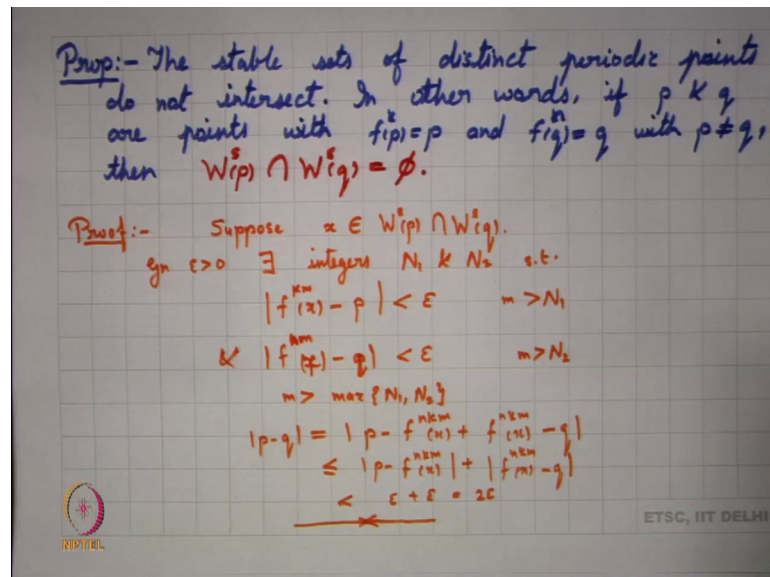 Prop:- The stable sets of distinct periodic points
do not intersect. In other words, if p & q
are points with f^k(p)=p and f^n(q)=q with p≠q,
then W^s(p) ∩ W^s(q) = ∅.
Proof:- Suppose x ∈ W^s(p) ∩ W^s(q).
Gn ε>0 ∃ integers N₁ & N₂ s.t.
|f^{km}(x) - p| < ε m > N₁
& |f^{nm}(x) - q| < ε m > N₂
m > max {N₁, N₂}
|p-q| = |p - f^{nkm}(x) + f^{nkm}(x) - q|
≤ |p - f^{nkm}(x)| + |f^{nkm}(x) - q|
< ε + ε = 2ε
NPTEL
ETSC, IIT DELHI